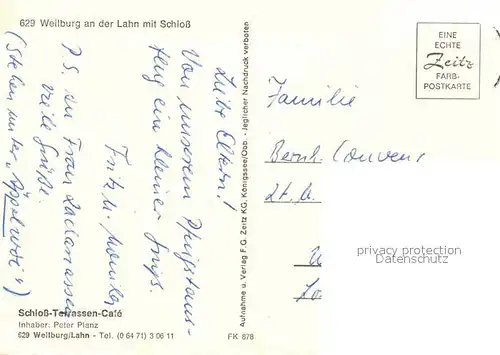 629 Weilburg an der Lahn mit Schloß
Liebe Eltern!
Von unserem Pfingstaus-
flug ein kleiner Gruß.
Fritz u. Monika
P.S. An Frau
viele Grüße.
(Stehen unter "Äppelwoi")
Schloß-Terrassen-Café
Inhaber: Peter Planz
629 Weilburg/Lahn - Tel. (0 64 71) 3 06 11
FK 878
Aufnahme u. Verlag F.G. Zeitz KG, Königssee/Obb. - Jeglicher Nachdruck verboten
EINE
ECHTE
Zeitz
FARB-
POSTKARTE
Familie
Bernh.
privacy protection
AKPOOL.DE